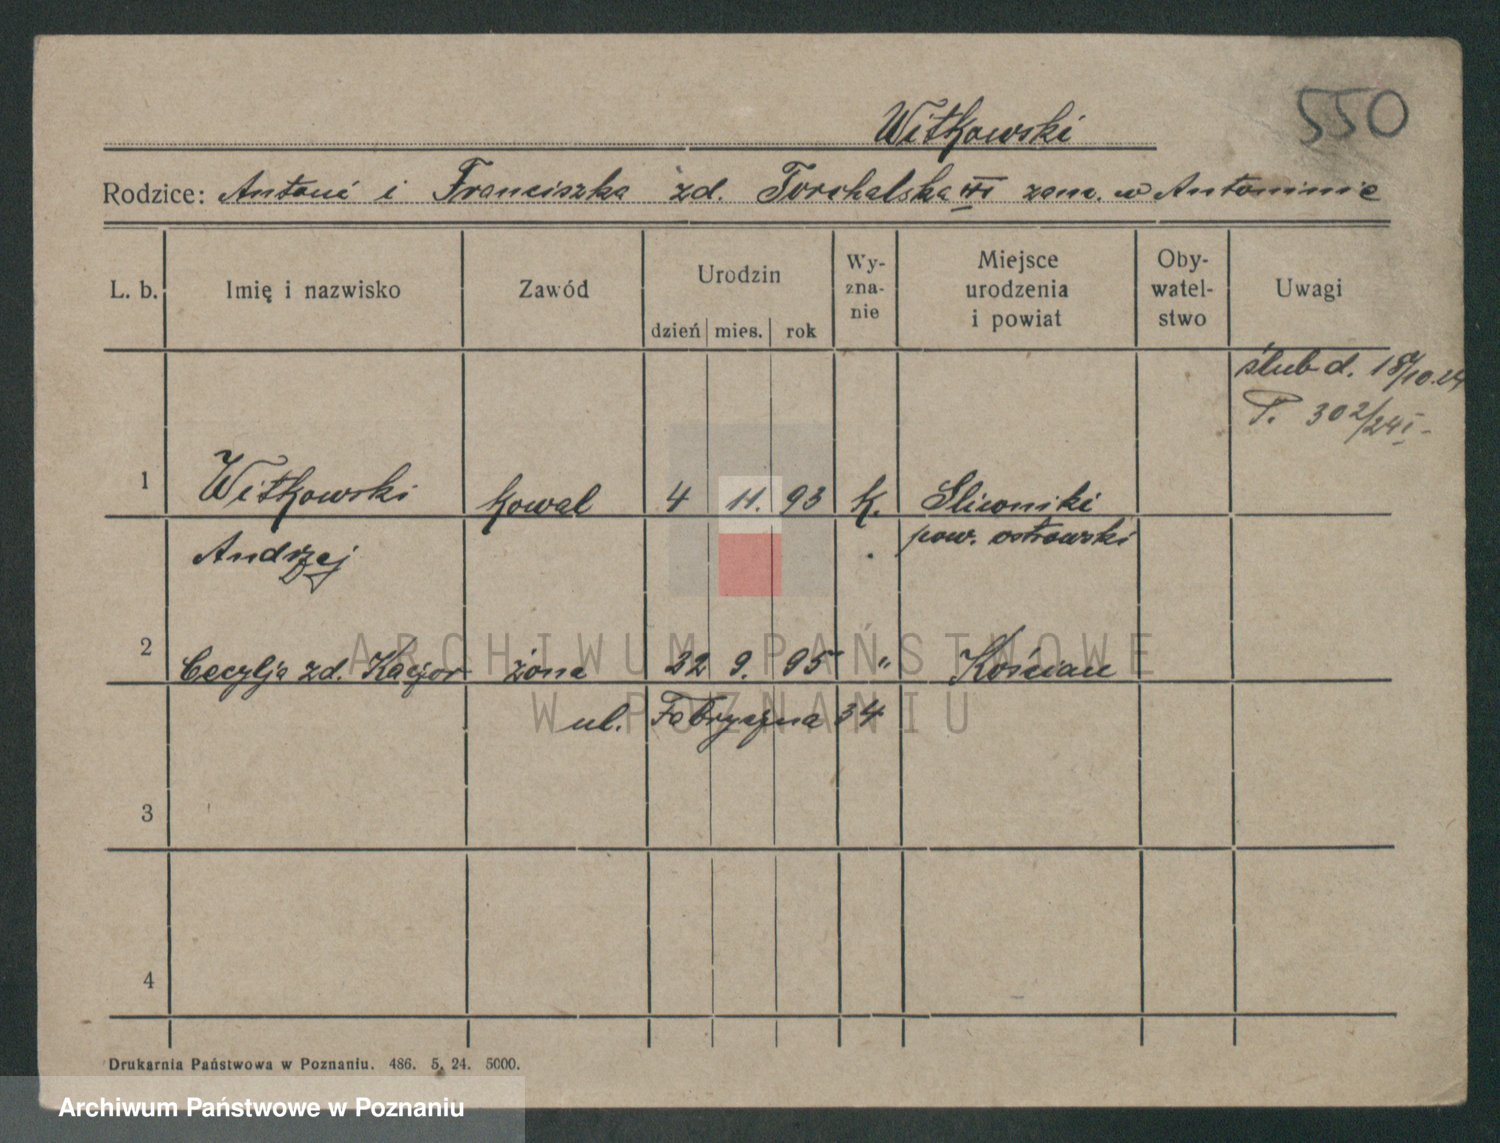 550
Witkowski
Rodzice: Antoni i Franciszka zd. Torchalska zam. w Antoninie
L. b. Imię i nazwisko Zawód Urodzin dzień mies. rok Wy-zna-nie Miejsce urodzenia i powiat Oby-watel-stwo Uwagi
ślub d. 18/10.24
P. 302/24I-
1 Witkowski kowal 4 11. 93 k. Śliwniki
Andrzej pow. ostrowski
2 Cecylja zd. Kaczor żona 22 9. 95 " Kościan
ul. Fabryczna 34
3
4
ARCHIWUM PAŃSTWOWE
W POZNANIU
Drukarnia Państwowa w Poznaniu. 486. 5, 24. 5000.
Archiwum Państwowe w Poznaniu